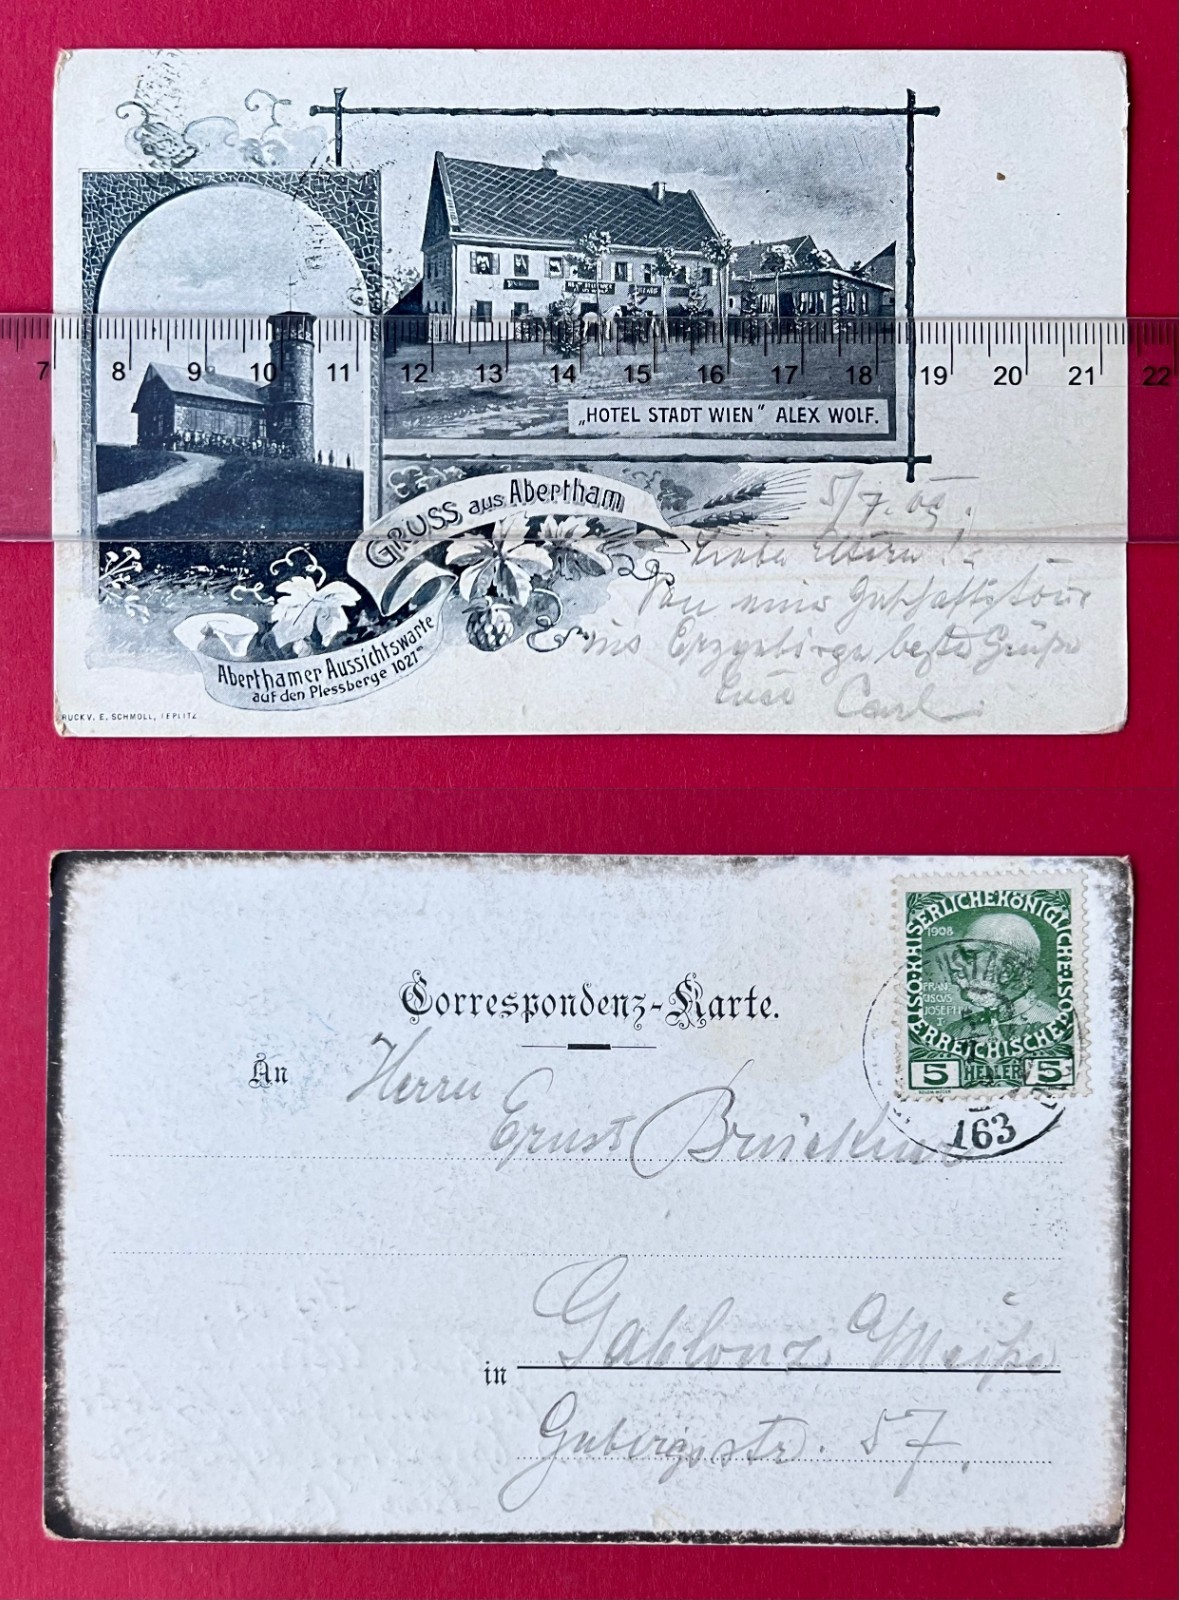 „HOTEL STADT WIEN" ALEX WOLF.
7 8 9 10 11 12 13 14 15 16 17 18 19 20 21 22
GRUSS aus Abertham
Aberthamer Aussichtswarte
auf den Plessberge 1021m
RUCK V. E. SCHMOLL, TEPLITZ
5/7.09.
Liebe Eltern!
Von einer Geschäftstour
ins Erzgebirge beste Grüße
Euer Carl
KAISERLICHE KÖNIGLICHE
ÖSTERREICHISCHE
1908
FRAN
CISCVS
JOSEPH
I
5 HELLER 5
163
Correspondenz-Karte.
An
Herrn
Ernst
in Gablonz a/Neiße
57